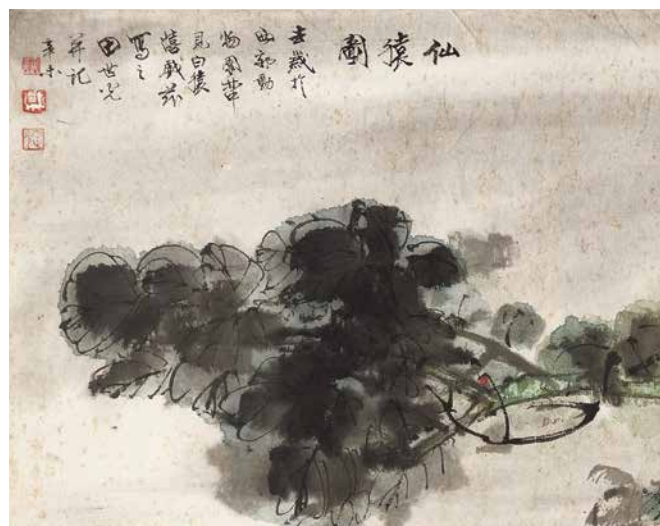 仙猿圖
去歲於
西郊動
物園
見白猿
嬉戲茲
寫之
田世光
并記
辛未